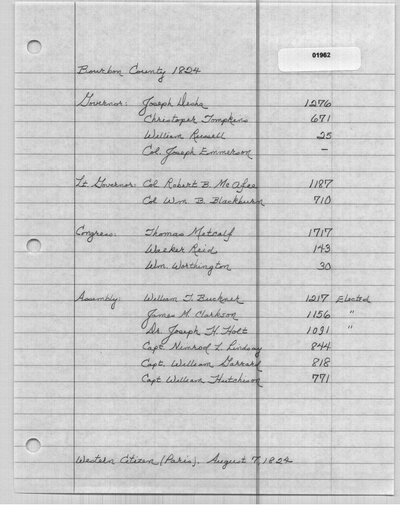 01962
Bourbon County 1824
Governor: Joseph Desha 1276
Christopher Tompkins 671
William Russell 25
Col. Joseph Emmerson –
Lt. Governor: Col Robert B. McAfee 1187
Col Wm. B. Blackburn 710
Congress: Thomas Metcalf 1717
Walker Reid 143
Wm. Worthington 30
Assembly: William T. Buckner 1217 Elected
James M. Clarkson 1156 "
Dr. Joseph H. Holt 1031 "
Capt Nimrod L. Lindsay 844
Capt. William Garrard 818
Capt William Hutcheson 771
Western Citizen (Paris), August 7, 1824